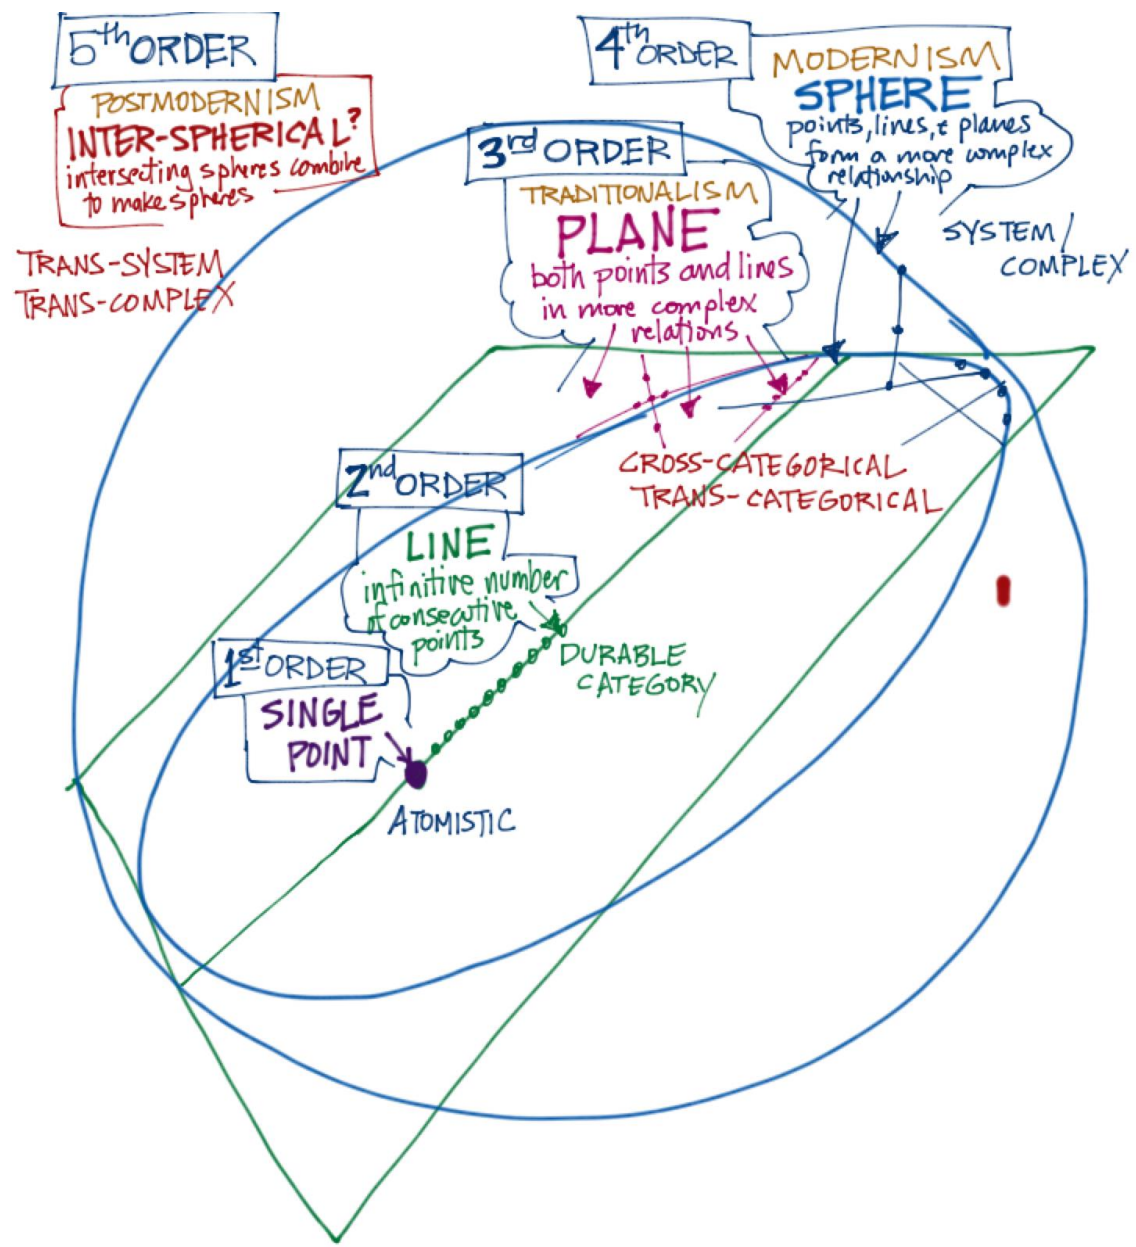 5th ORDER
POSTMODERNISM
INTER-SPHERICAL?
intersecting spheres combine
to make spheres
TRANS-SYSTEM
TRANS-COMPLEX
4th ORDER
MODERNISM
SPHERE
points, lines, & planes
form a more complex
relationship
SYSTEM/
COMPLEX
3rd ORDER
TRADITIONALISM
PLANE
both points and lines
in more complex
relations
CROSS-CATEGORICAL
TRANS-CATEGORICAL
2nd ORDER
LINE
infinitive number
of consecutive
points
DURABLE
CATEGORY
1st ORDER
SINGLE
POINT
ATOMISTIC